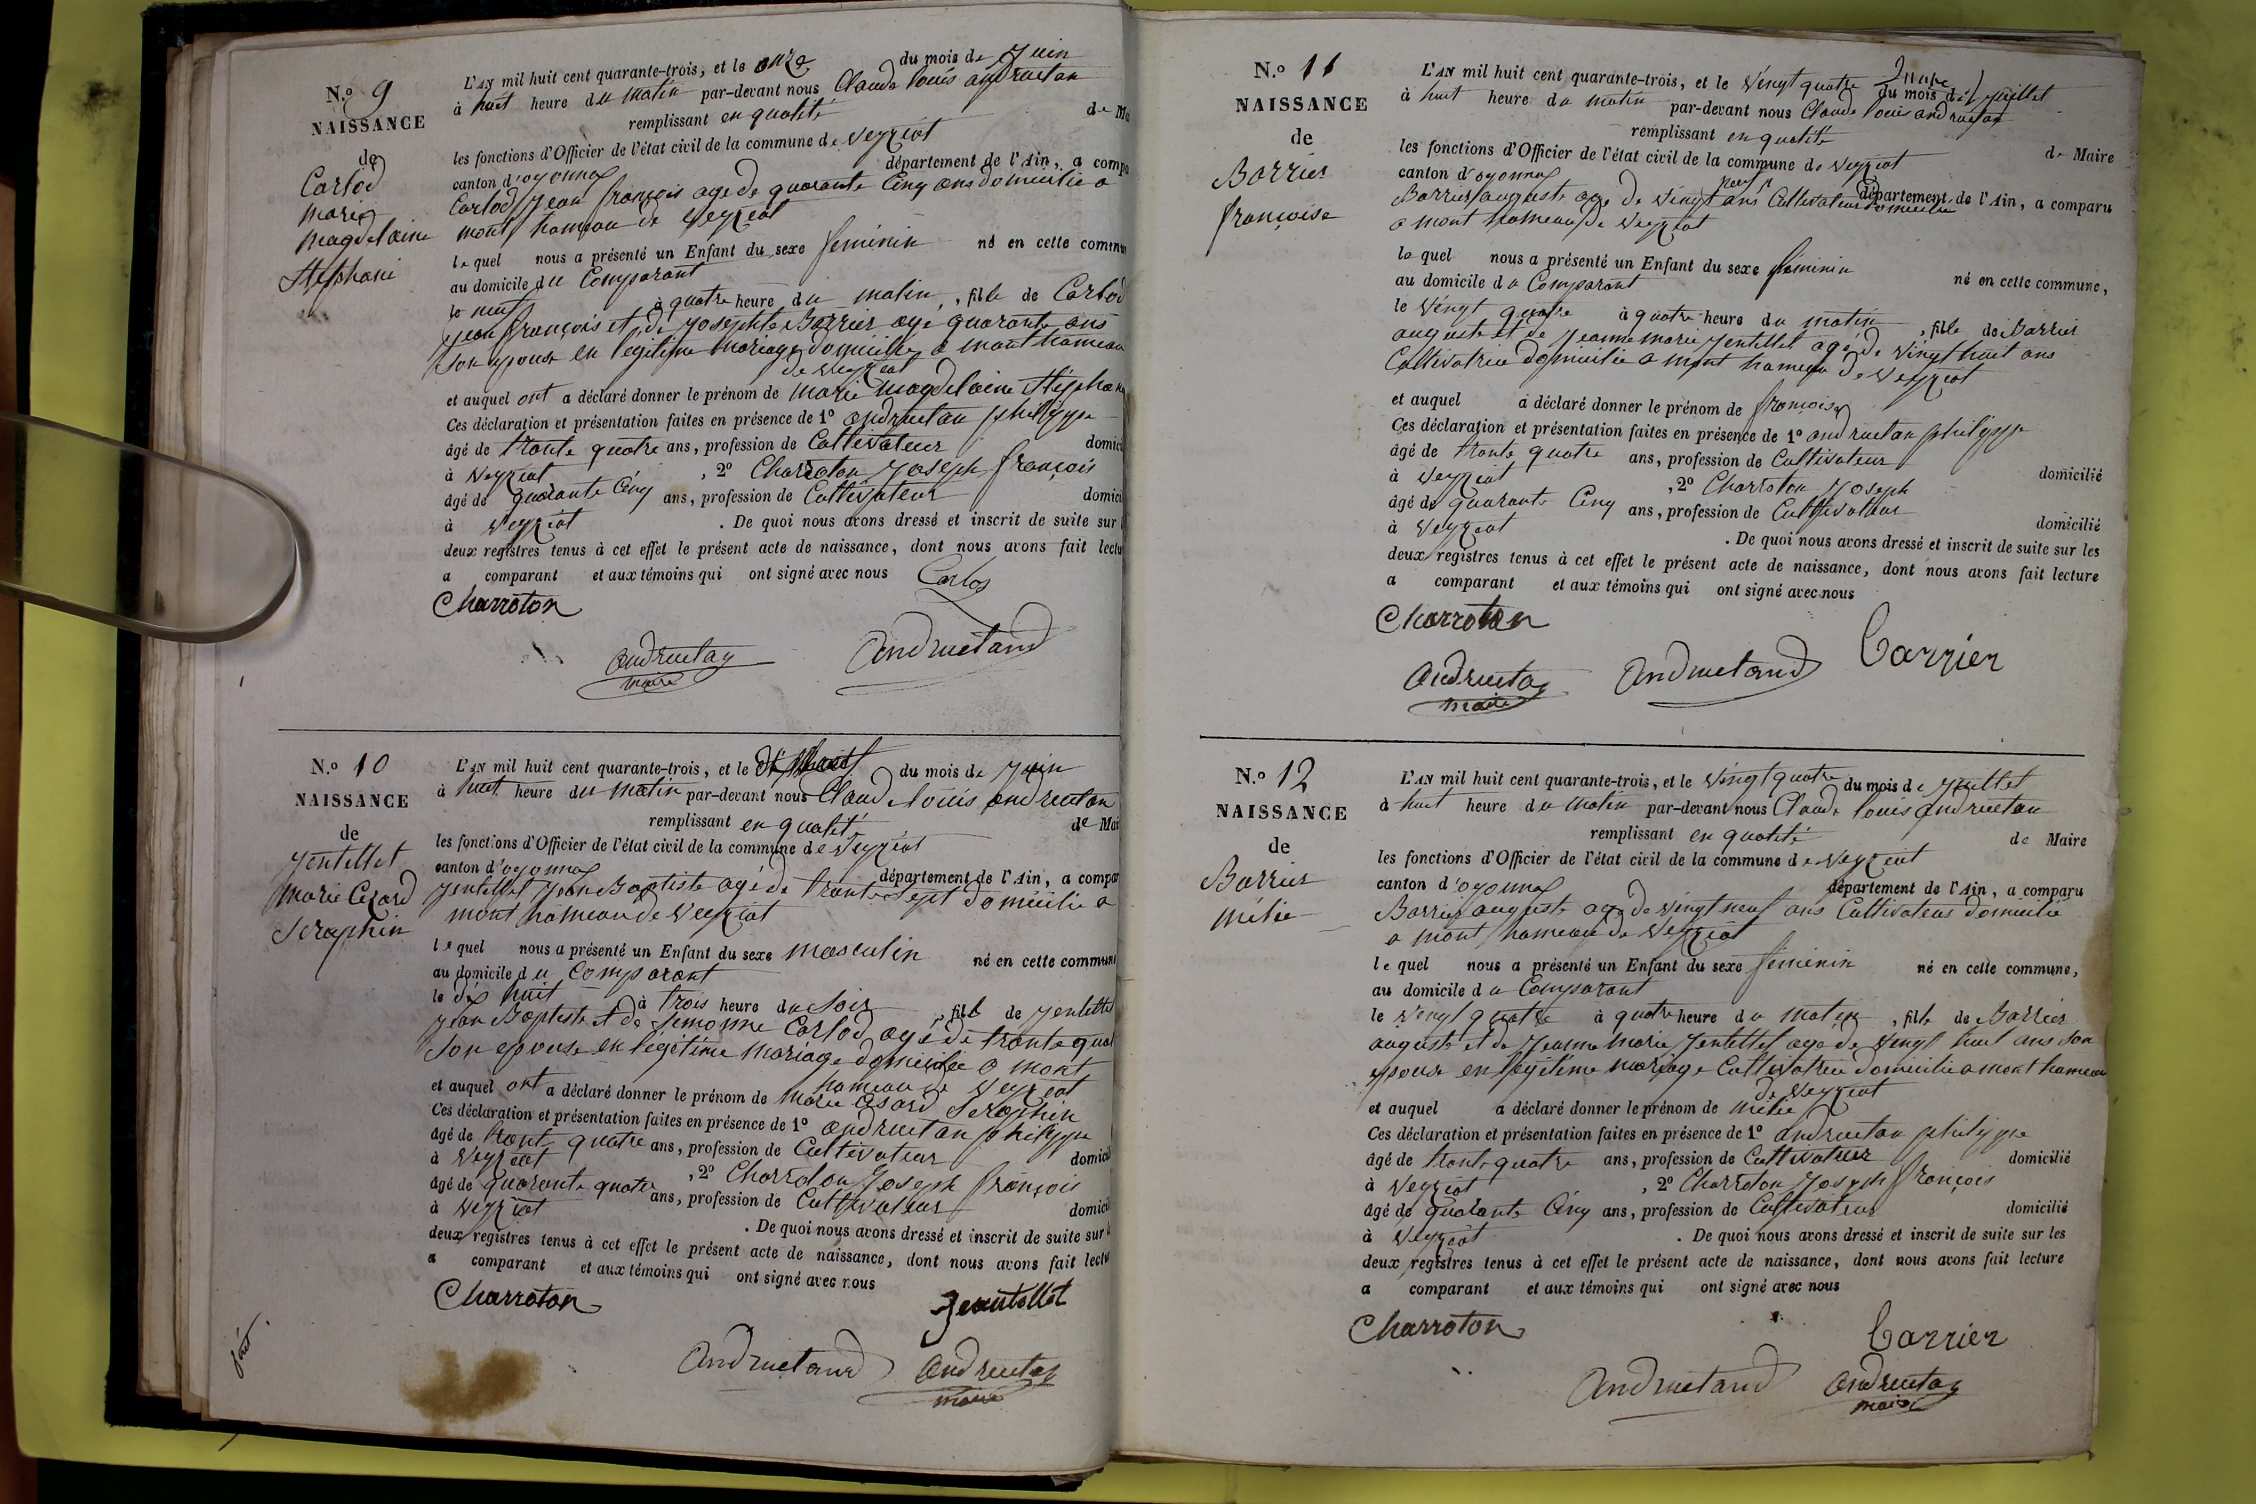 N.º 9
NAISSANCE
de
Carlod
marie
magdelaine
Stéphani
L'AN mil huit cent quarante-trois, et le onze du mois de Juin
à huit heure du matin par-devant nous Claude louis andruetan
remplissant en qualité de Mai
les fonctions d'Officier de l'état civil de la commune de Veyziat
canton d'oyonnax département de l'Ain, a compa
Carlod Jean françois age de quarante Cinq ans domicilié a
mont hameau de Veyziat
lequel nous a présenté un Enfant du sexe féminin né en cette commun
au domicile du Comparant
le neuf à quatre heure du matin, fille de Carlod
jean françois et de Josephte Barrier agé quarante ans
son epouse en legitime mariage domicilié a mont hameau
de veyziat
et auquel ont a déclaré donner le prénom de marie magdelaine Stéphani
Ces déclaration et présentation faites en présence de 1º andruetan philippe
âgé de trente quatre ans, profession de Cultivateur domici
à Veyziat, 2º Charroton Joseph françois
âgé de quarante Cinq ans, profession de Cultivateur domici
à Veyziat. De quoi nous avons dressé et inscrit de suite sur
deux registres tenus à cet effet le présent acte de naissance, dont nous avons fait lectu
a comparant et aux témoins qui ont signé avec nous Carlod
Charroton
andruetan
maire
andruetand
N.º 10
NAISSANCE
de
Jentellet
marie Cezard
Seraphin
L'AN mil huit cent quarante-trois, et le du mois de Juin
à huit heure du matin par-devant nous Claude louis andruetan
remplissant en qualité de Mai
les fonctions d'Officier de l'état civil de la commune de Veyziat
canton d'oyonnax département de l'Ain, a compar
Jentellet Jean Baptiste agé de trante Sept domicilié a
mont hameau de Veyziat
lequel nous a présenté un Enfant du sexe masculin né en cette commune
au domicile du Comparant
le dix huit à trois heure du Soir, fils de Jentellet
jean Baptiste et de Simonne Carlod agé de trante qua
Son epouse en legitime mariage domicilié a mont
hameau de Veyziat
et auquel ont a déclaré donner le prénom de marie Cesard Seraphin
Ces déclaration et présentation faites en présence de 1º andruetan philippe
âgé de trante quatre ans, profession de Cultivateur
à Veyziat domicil
, 2º Charroton Joseph françois
âgé de quarante quatre ans, profession de Cultivateur
à Veyziat domici
. De quoi nous avons dressé et inscrit de suite sur
deux registres tenus à cet effet le présent acte de naissance, dont nous avons fait lectu
a comparant et aux témoins qui ont signé avec nous
Charroton
Jeantellet
andruetand
andruetan
maire
N.º 11
NAISSANCE
de
Barrier
françoise
L'AN mil huit cent quarante-trois, et le Vingt quatre du mois de Juillet
à huit heure du matin par-devant nous Claude louis andruetan
remplissant en qualité de Maire
les fonctions d'Officier de l'état civil de la commune de Veyziat
canton d'oyonnax département de l'Ain, a comparu
Barrier auguste age de Vingt neuf ans Cultivateur domicilié
a mont hameau de Veyziat
lequel nous a présenté un Enfant du sexe féminin né en cette commune,
au domicile du Comparant
le Vingt quatre à quatre heure du matin, fille de Barrier
auguste et de Jeanne marie Jentellet agé de Vingt huit ans
Cultivatrice domicilié a mont hameau de Veyziat
et auquel a déclaré donner le prénom de françoise
Ces déclaration et présentation faites en présence de 1º andruetan philippe
âgé de trante quatre ans, profession de Cultivateur domicilié
à Veyziat, 2º Charroton Joseph
âgé de quarante Cinq ans, profession de Cultivateur domicilié
à Veyziat. De quoi nous avons dressé et inscrit de suite sur les
deux registres tenus à cet effet le présent acte de naissance, dont nous avons fait lecture
a comparant et aux témoins qui ont signé avec nous
Charroton
andruetan
maire
andruetand
Barrier
N.º 12
NAISSANCE
de
Barrier
mélie
L'AN mil huit cent quarante-trois, et le Vingt quatre du mois de Juillet
à huit heure du matin par-devant nous Claude louis andruetan
remplissant en qualité de Maire
les fonctions d'Officier de l'état civil de la commune de Veyziat
canton d'oyonnax département de l'Ain, a comparu
Barrier auguste age de vingt neuf ans Cultivateur domicilié
a mont hameau de Veyziat
lequel nous a présenté un Enfant du sexe féminin né en cette commune,
au domicile du Comparant
le Vingt quatre à quatre heure du matin, fille de Barrier
auguste et de Jeanne marie Jentellet age de Vingt huit ans son
epouse en legitime mariage Cultivatrice domicilié a mont hameau
de Veyziat
et auquel a déclaré donner le prénom de mélie
Ces déclaration et présentation faites en présence de 1º andruetan philippe
âgé de trante quatre ans, profession de Cultivateur domicilié
à Veyziat, 2º Charroton Joseph françois
âgé de quarante Cinq ans, profession de Cultivateur domicilié
à Veyziat. De quoi nous avons dressé et inscrit de suite sur les
deux registres tenus à cet effet le présent acte de naissance, dont nous avons fait lecture
a comparant et aux témoins qui ont signé avec nous
Charroton
Barrier
andruetand
andruetan
maire